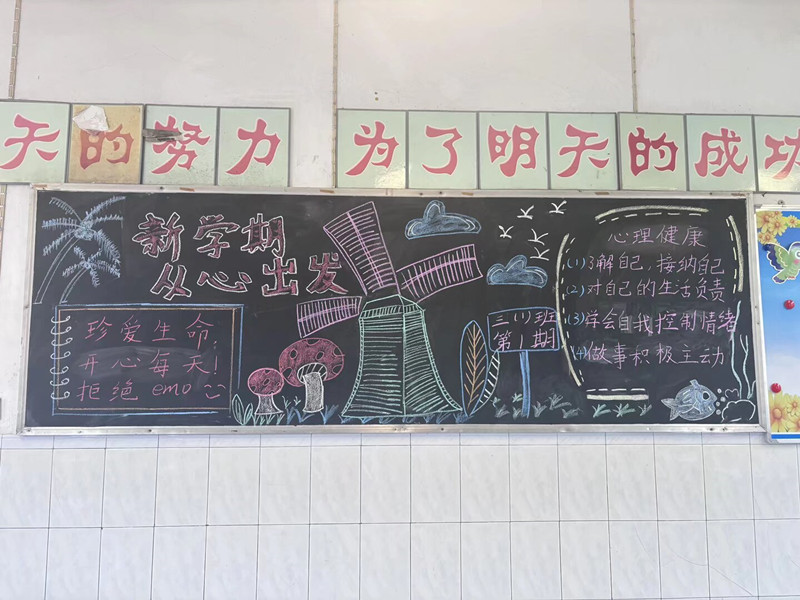 天的努力 为了明天的成功
新学期
从心出发
珍爱生命,
开心每天!
拒绝emo
三(1)班
第1期
心理健康
(1)了解自己,接纳自己
(2)对自己的生活负责
(3)学会自我控制情绪
(4)做事积极主动